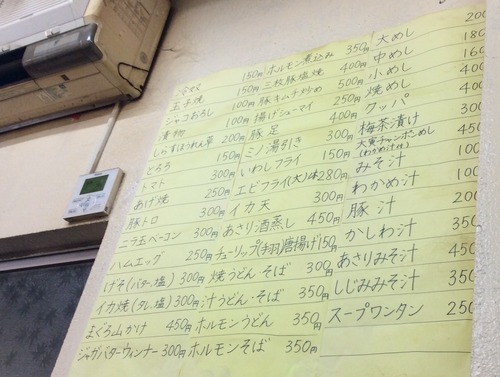 冷奴 150円
玉子焼 150円
ジャコおろし 100円
漬物 100円
しらすほうれん草 200円
とろろ 150円
トマト 300円
あげ焼 250円
豚トロ 300円
ニラ玉ベーコン 300円
ハムエッグ 250円
げそ(バター,塩) 300円
イカ焼(タレ,塩) 300円
まぐろ山かけ 450円
ジャガバターウィンナー 300円
ホルモン煮込み 350円
三枚豚塩焼 400円
豚キムチ炒め 500円
揚げシューマイ 250円
豚足 400円
ミノ湯引き 300円
いわしフライ 300円
エビフライ(大)1本280円
イカ天 300円
あさり酒蒸し 450円
チューリップ(手羽)唐揚げ150円
焼うどん・そば 300円
汁うどん・そば 350円
ホルモンうどん 350円
ホルモンそば 350円
大めし 200
中めし 180
小めし 160
焼めし 400
クッパ 400
梅茶漬け 300
大東チャンポンめし 450
(わかめ汁付)
みそ汁 100
わかめ汁 100
豚汁
かしわ汁 350
あさりみそ汁 450
しじみみそ汁 350
スープワンタン 250